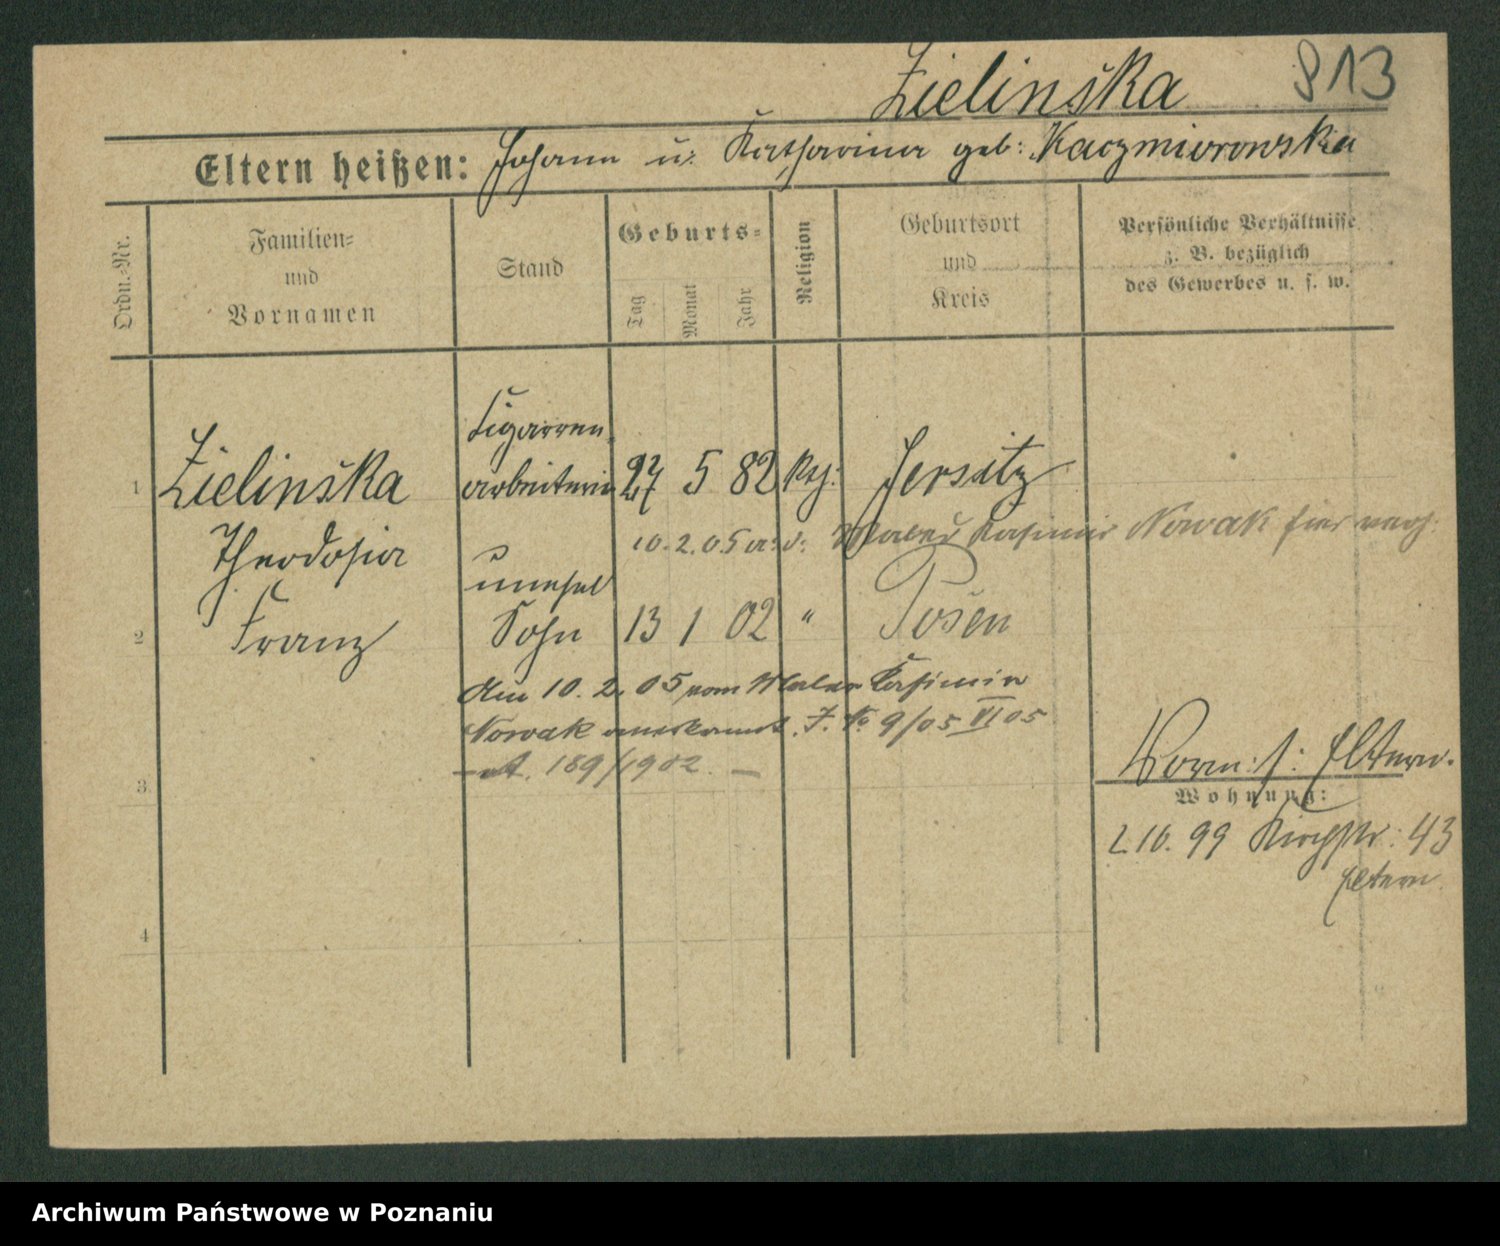 Zielinska 813
Eltern heißen: Johann u. Katharina geb: Kaczmierowska
Ordn.-Nr.
Familien-
und
Vornamen
Stand
Geburts-
Tag
Monat
Jahr
Religion
Geburtsort
und
Kreis
Persönliche Verhältnisse
z. B. bezüglich
des Gewerbes u. s. w.
Cigarren-
1 Zielinska arbeiterin 27 5 82 kth: Jersitz
Theodosia 10.2.05 a: d: Maler Kasimir Nowak hier verh:
unehel
2 Franz Sohn 13 1 02 " Posen
Am 10. 2. 05 vom Maler Kasimir
Nowak anerkannt. J. No 9/05 VI 05
189/1902
3
Vorm: s: Eltern.
Wohnung:
2 10. 99 Kirchstr: 43
Eltern.
4
Archiwum Państwowe w Poznaniu